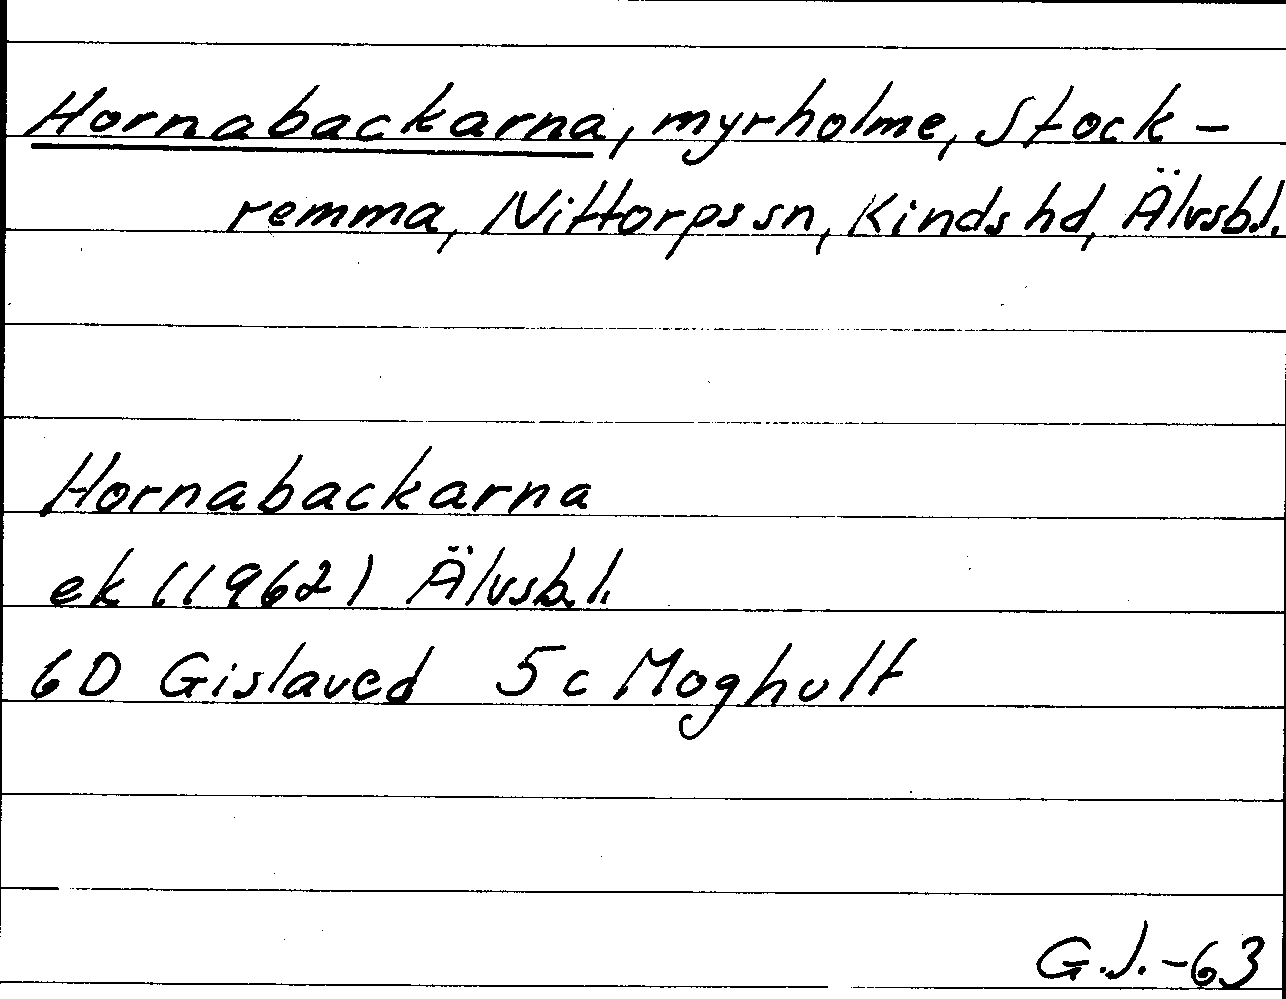 Hornabackarna, myrholme, Stock-
remma, Nittorps sn, Kinds hd, Älvsb.l.
Hornabackarna
ek (1962) Älvsb.l.
6D Gislaved 5c Moghult
G.J.-63